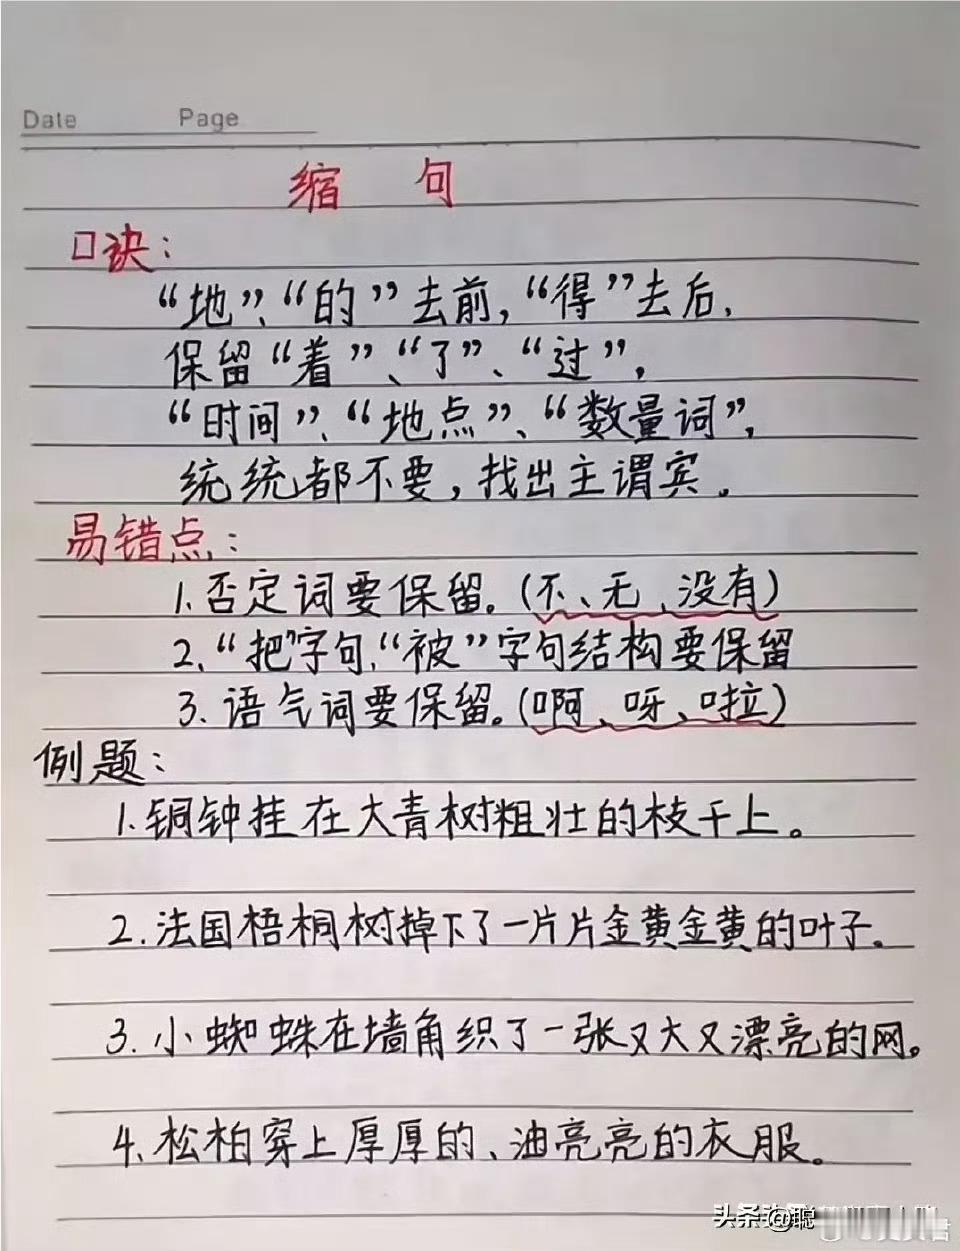 Date Page
缩 句
口诀：
“地”、“的”去前，“得”去后，
保留“着”、“了”、“过”，
“时间”、“地点”、“数量词”，
统统都不要，找出主谓宾。
易错点：
1.否定词要保留。(不、无、没有)
2.“把”字句、“被”字句结构要保留
3.语气词要保留。(啊、呀、啦)
例题：
1.铜钟挂在大青树粗壮的枝干上。
2.法国梧桐树掉下了一片片金黄金黄的叶子。
3.小蜘蛛在墙角织了一张又大又漂亮的网。
4.松柏穿上厚厚的、油亮亮的衣服。
头条 @聪